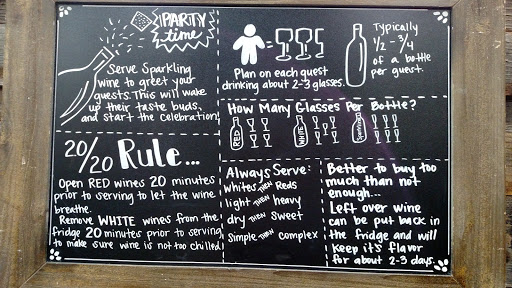 PARTY
time
Serve Sparkling
wine to greet your
guests. This will wake
up their taste buds,
and start the celebration!
Plan on each guest
drinking about 2-3 glasses.
Typically
1/2 - 3/4
of a bottle
per guest.
How Many Glasses Per Bottle?
RED
WHITE
Sparkling
20/20 Rule...
Open RED wines 20 minutes
prior to serving to let the wine
breathe.
Remove WHITE wines from the
fridge 20 minutes prior to serving
to make sure wine is not too chilled
Always Serve:
whites THEN Reds
light THEN heavy
dry THEN Sweet
Simple THEN complex
Better to buy too
much than not
enough...
Left over wine
can be put back in
the fridge and will
keep it's flavor
for about 2-3 days.